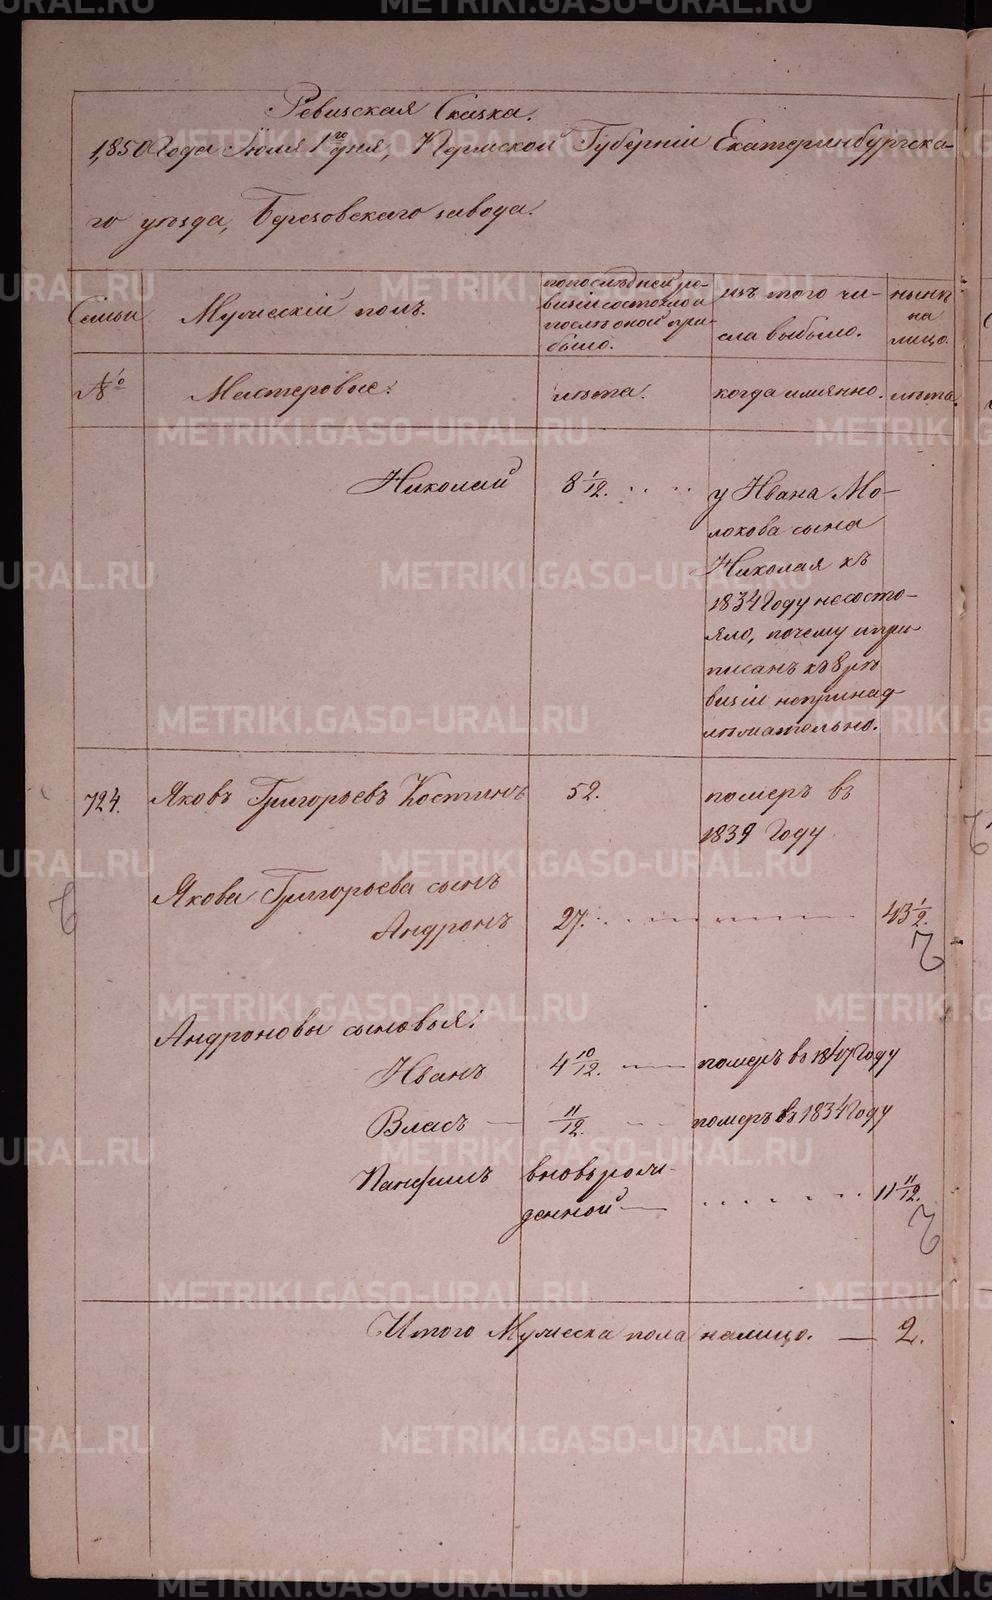 Ревизская Сказка.
1850 Года Июля 1го дня, Пермской Губерніи Екатеринбургска-
го уѣзда, Березовскаго завода.
Семьи
Мужескій полъ.
по послѣдней ре-
визіи состояло и
послѣ оной при-
было.
изъ того чи-
сла выбыло.
нынѣ
на
лицо.
№
Мастеровые:
лѣта.
когда имянно.
лѣта.
Николай
8 1/12.
у Ивана Мо-
лохова сына
Николая къ
1834 Году несосто-
яло, почему и при
писанъ къ 8 ре
визіи непринад
лѣжательно.
724.
Яковъ Григорьевъ Костинъ
52.
померъ въ
1839 Году
Якова Григорьева сынъ
Андронъ
27.
43 1/2.
Андроновы сыновья:
Иванъ
4 10/12.
померъ въ Году
Власъ
11/12.
померъ въ 1834 Году
Панфилъ
вновьрож-
денной
11 11/12.
Итого Мужеска пола налицо. — 2.
METRIKI.GASO-URAL.RU